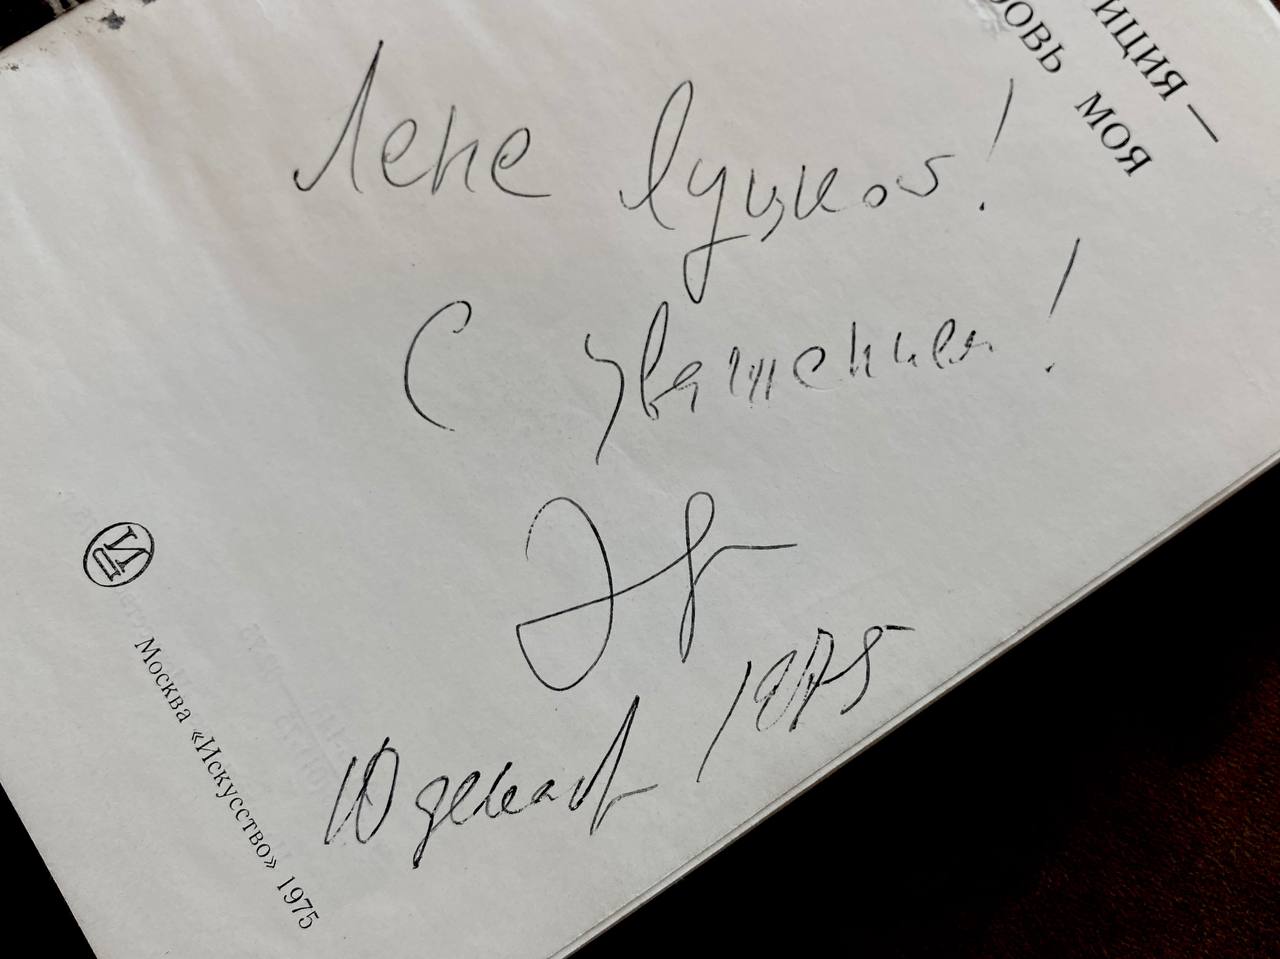 иция —
овь моя
Лене Луцкой!
С уважением!
10 декаб 1975
И
Москва «Искусство» 1975